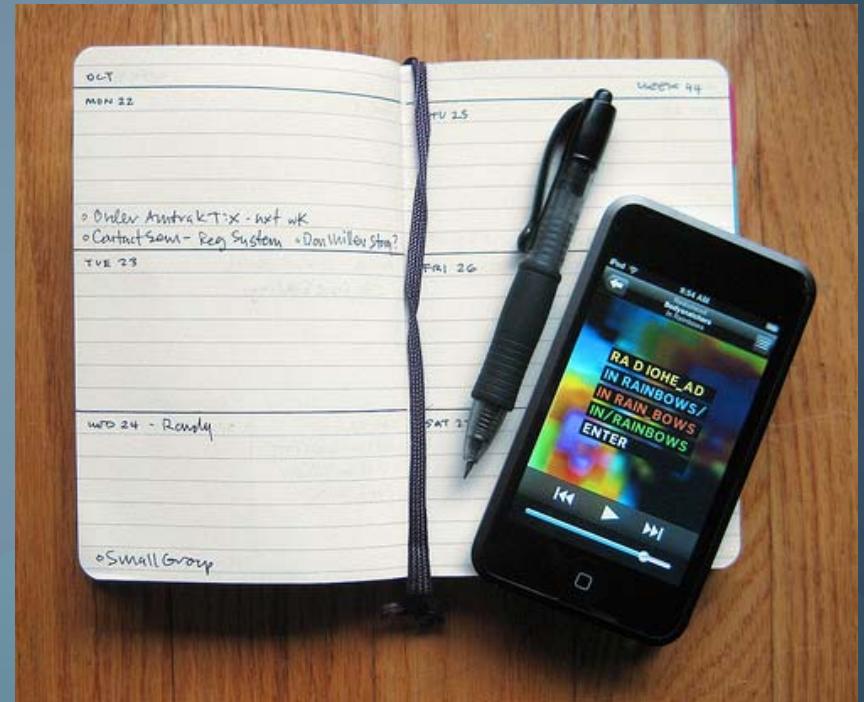 OCT
MON 22
o Order Amtrak Tix - nxt wk
o Contact Sem - Reg System o Don Miller Story?
TUE 23
WED 24 - Randy
o Small Group
WEEK 44
TU 25
FRI 26
SAT 2
iPod
8:54 AM
Radiohead
Bodysnatchers
In Rainbows
RA D IOHE_AD
IN RAINBOWS/
IN RAIN_BOWS
IN/RAINBOWS
ENTER